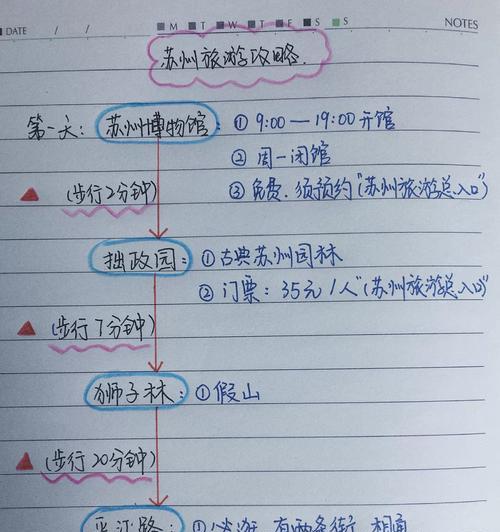 DATE / / M T W T F S S NOTES
苏州旅游攻略.
第一天: 苏州博物馆: ① 9:00—19:00 开馆
② 周一闭馆
(步行2分钟) ③ 免费. 须预约“苏州旅游总入口”
拙政园: ① 古典苏州园林
② 门票: 35元/人“苏州旅游总入口”
(步行7分钟)
狮子林: ① 假山
(步行20分钟)
平江路: ① 必逛 有两条街 相通